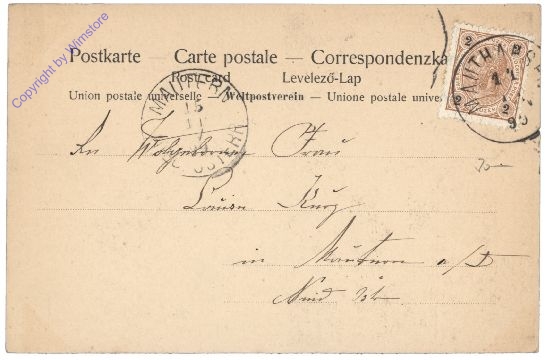 Copyright by Wimstore
Postkarte – Carte postale – Correspondenzka
Post-card Levelező-Lap
Union postale universelle – Weltpostverein – Unione postale univer
2 2
MAUTHAUSE
MAUTERN
An Wolgeborene Frau
Louise Kurz
in Mautern a/D